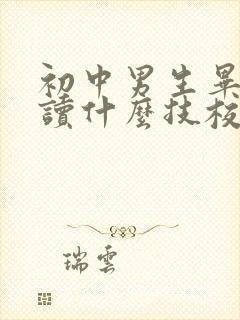 初中男生畢
讀什麼技校
瑞雲